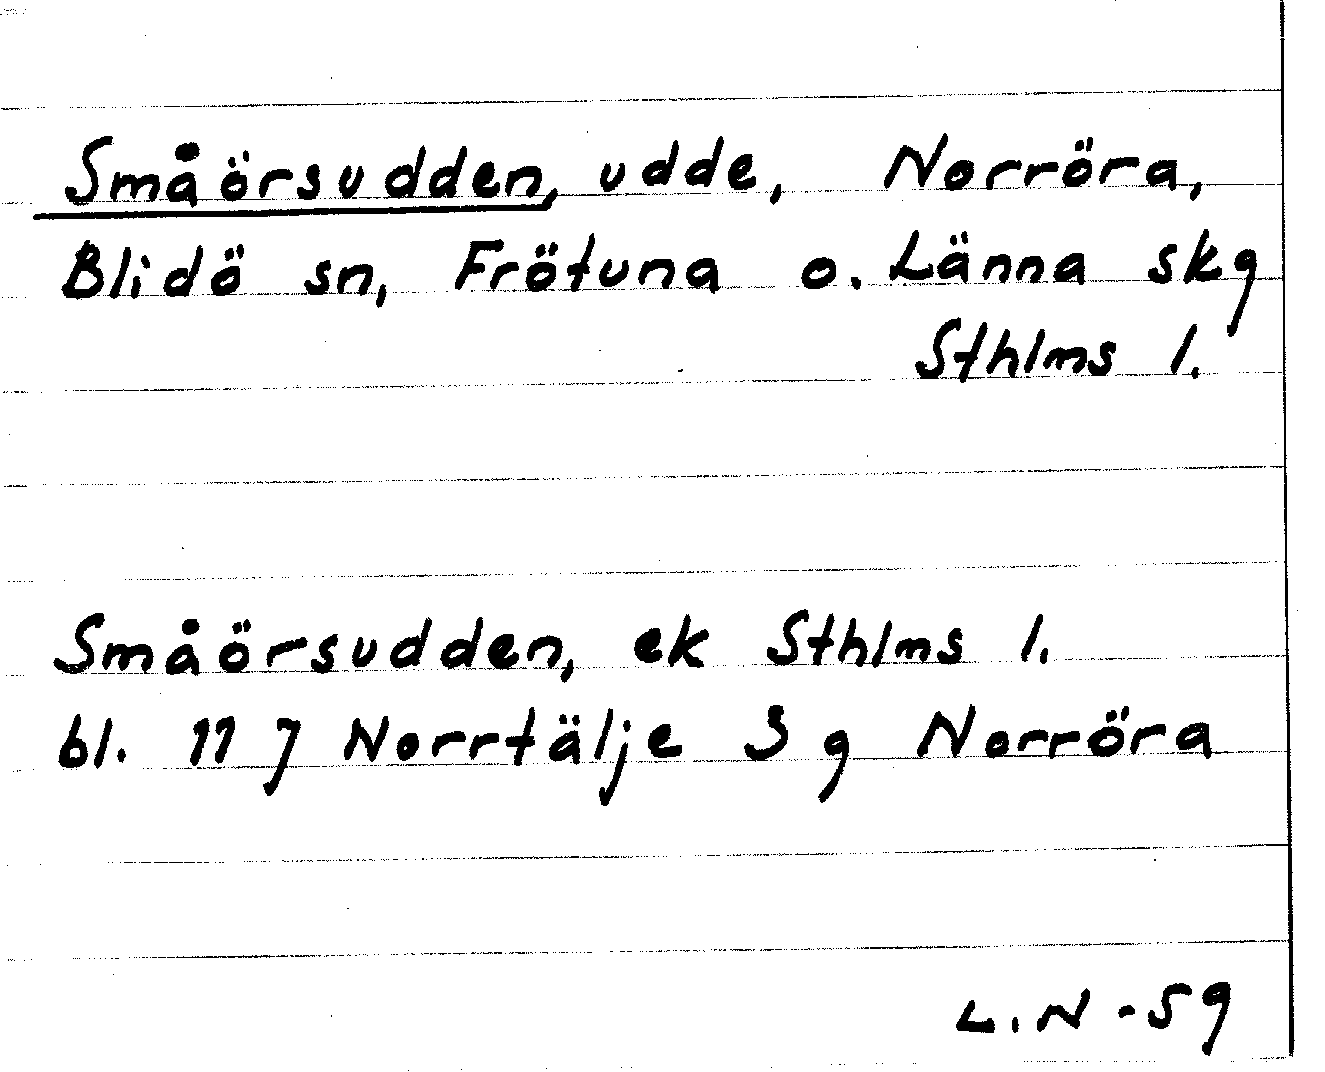 Småörsudden, udde, Norröra,
Blidö sn, Frötuna o. Länna skg
Sthlms l.
Småörsudden, ek Sthlms l.
bl. 11 J Norrtälje 3 g Norröra
L.N -59